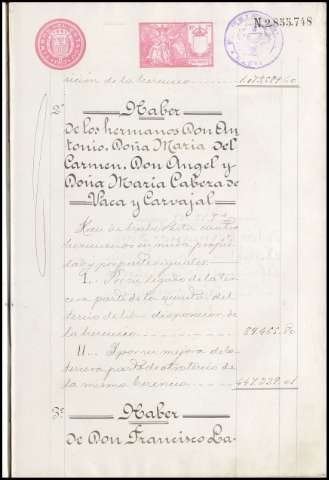 N.2.855.748
rición de la herencia 1.073.589.60
2º
Haber
de los hermanos Don An
tonio, Doña Maria del
Carmen, Don Angel y
Doña Maria Cabeza de
Vaca y Carvajal
Han de haber estos cuatro
herederos en nuda propie
dad y por partes iguales
I... Por el legado de la ter
cera parte de la quinta del
tercio de libre disposición de
la herencia 89.465.80
II... Y por la mejora de la
tercera parte de otro tercio de
la misma herencia 447.329.01
3º
Haber
de Don Francisco La-